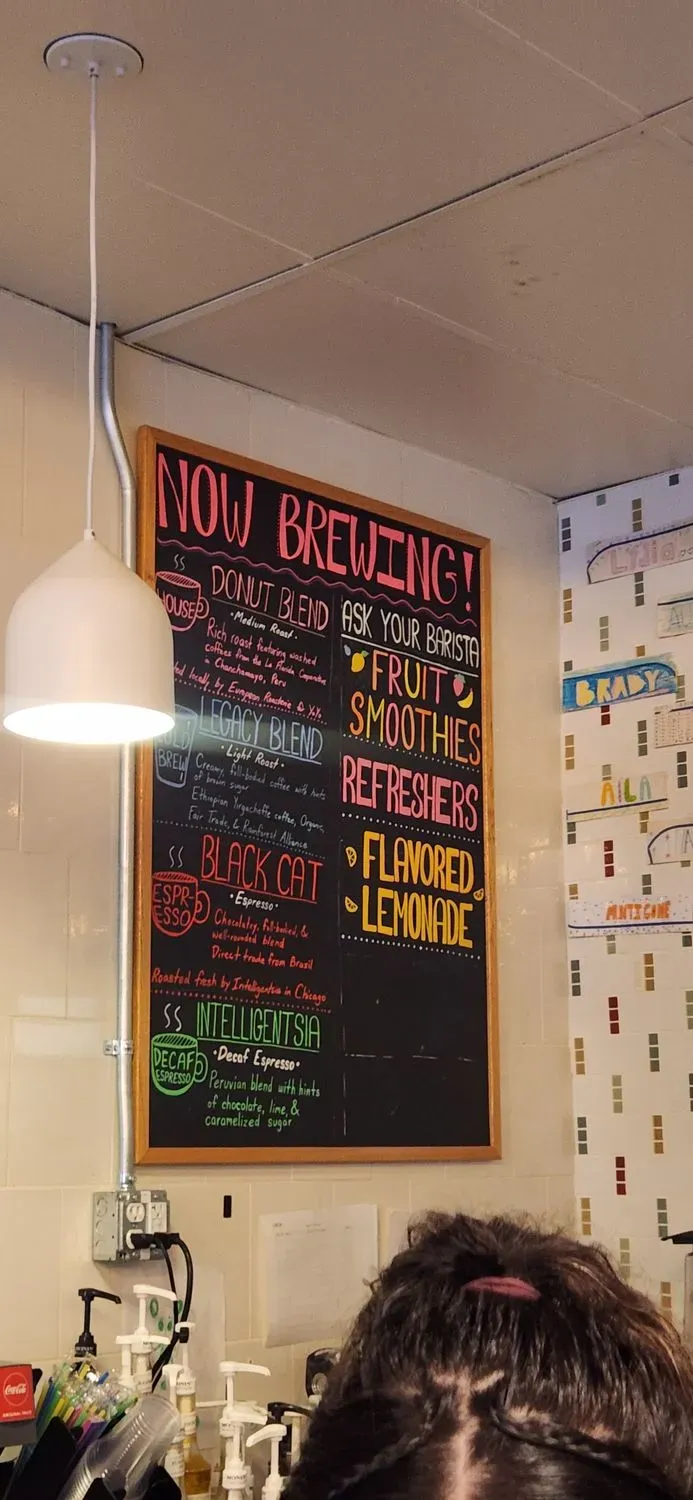 NOW BREWING!
HOUSE
DONUT BLEND
•Medium Roast•
Rich roast featuring washed
coffees from the La Florida Cooperative
in Chanchamayo, Peru
locally by European Roasterie & YoYo
BREW
LEGACY BLEND
•Light Roast•
Creamy, full-bodied coffee with hints
of brown sugar
Ethiopian Yirgacheffe coffee, Organic,
Fair Trade, & Rainforest Alliance
ESPR-
ESSO
BLACK CAT
•Espresso•
Chocolatey, full-bodied, &
well-rounded blend
Direct trade from Brazil
Roasted fresh by Intelligentsia in Chicago
DECAF
ESPRESSO
INTELLIGENTSIA
•Decaf Espresso•
Peruvian blend with hints
of chocolate, lime, &
caramelized sugar
ASK YOUR BARISTA
FRUIT
SMOOTHIES
REFRESHERS
FLAVORED
LEMONADE
BRADY
AILA
ANTIGONE
Coca-Cola